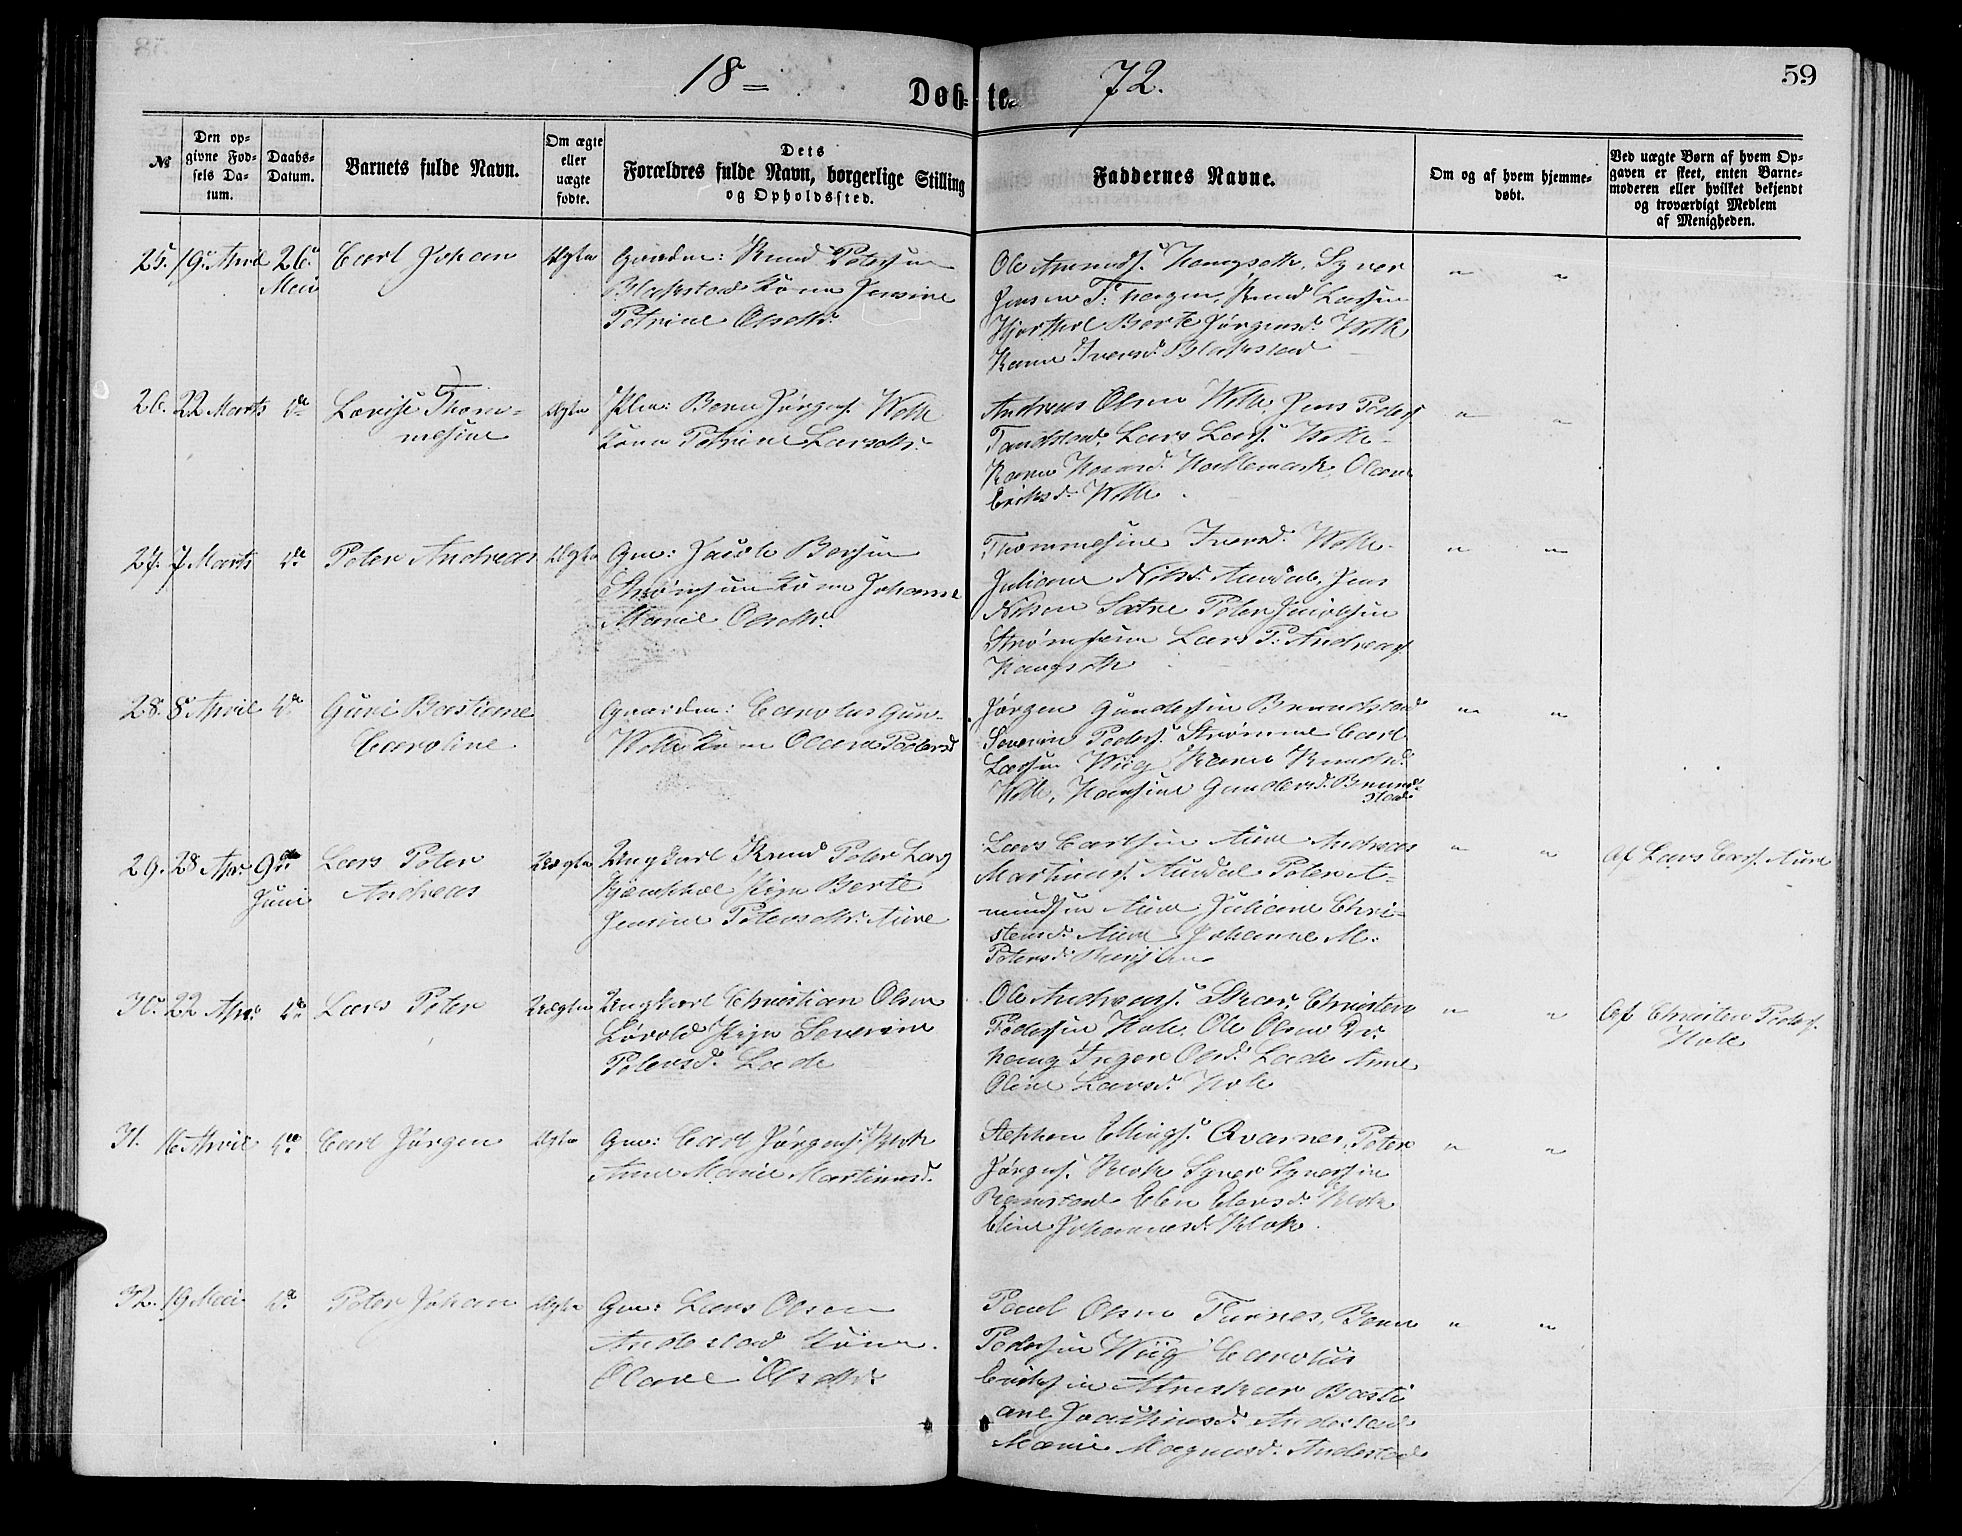 18= 72.
Døb- te. 59
№
Den op-
givne Fød-
sels Da-
tum.
Daabs-
Datum.
Barnets fulde Navn.
Om ægte
eller
uægte
fødte.
Dets
Forældres fulde Navn, borgerlige Stilling
og Opholdssted.
Faddernes Navne.
Om og af hvem hjemme-
døbt.
Ved uægte Børn af hvem Op-
gaven er skeet, enten Barne-
moderen eller hvilket bekjendt
og troværdigt Medlem
af Menigheden.
25. 19 April 26
Mai
Carl Johan
Ægte
Gaardm: Knud Petersen
Blakstad Kone Jensine
Petrine Olsdtr.
Ole Amunds. Haugseth, Syver
Jensen Knud Larsen
Hjorthol Berte Jørgensd. Welle
Karen Iversd. Blakstad
26. 22 Marts do
Lovise Thom-
mesine
Ægte
Bern Jørgens. Welle
Kone Petrine Larsdtr.
Andreas Olsen Welle, Jens Peders.
Tandstad, Lars Lars. Welle
Karen Olave
Eriksd. Welle.
27. 7 Marts do
Peter Andreas
Ægte
Gm: Jacob Bersen
Strømshun Kone Johanne
Marie Olsdtr.
Thommesine Iversd. Welle
Juliane Nilsd. Aurdal, Jens
Nilsen Sætre Peter Jacobsen
Lars P. Andreas.
Haugseth
28. 8 April do
Guri Bastiane
Caroline
Gaardm: Carolus Gun.
Welle Kone Olave Pedersd.
Jørgen Gundersen Brundstad
Severin Peders. Strømme Carl
Larsen Wiig Karen Knudsd.
Welle, Hansine Gundersd. Brund-
stad
29. 28 Apr. 9de
Juni
Lars Peter
Andreas
Uægte
Ungkarl Knud Peter Lars.
Hjemshol Pige Berte
Jensine Petersdtr. Aure
Lars Carlsen Aure Andreas
Martinus. Aurdal Peter A-
mundsen Aure Juliane Chri-
stensd. Aure Johanne M.
Petersd.
" " Af Lars Carls. Aure
30. 22 Apr. do
Lars Peter
Uægte
Ungkarl Christian Olsen
Løvold Pige Severine
Petersd. Lade
Ole Andreas. Skar, Christen
Pedersen Hole, Ole Olsen
Inger Olsd. Lade Anne
Oline Larsd. Hole
" " Af Christen Peders.
Hole
31. 16 April do
Carl Jørgen
Ægte
Gm: Carl Jørgens. Klok
Anne Marie Martinusd.
Stephen Ellings. Qvarnes, Peter
Jørgens. Klok Syver Syversen
Ramstad Elen Elersd. Klok
Eline Johannesd. Klok.
32. 19 Mai do
Peter Johan
Ægte
Gm: Lars Olsen
Andestad Kone
Olave Olsdtr.
Poul Olsen Tusnes, Bern
Pedersen Wiig Carolus
Eriksen Basti-
ane Joachimsd. Andestad
Marie Magnusd. Andestad